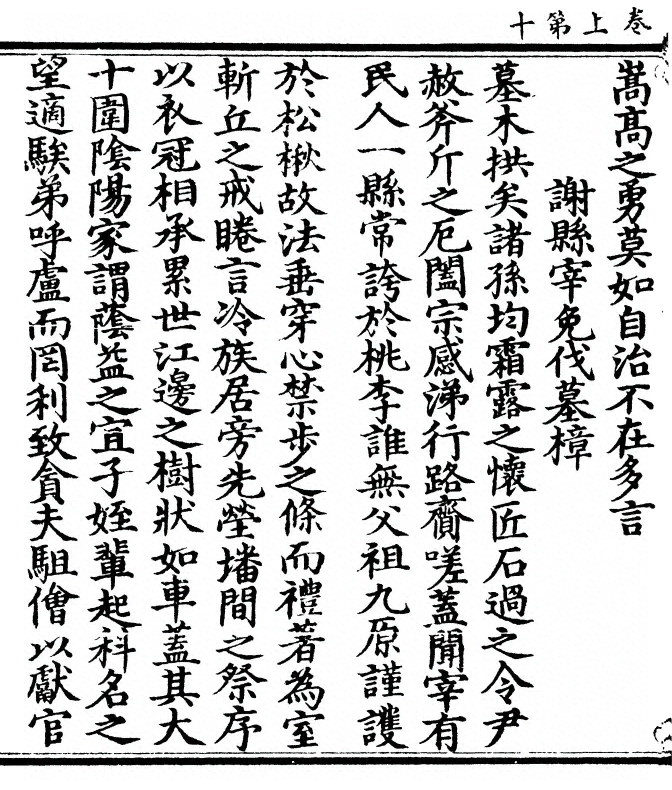 卷上第十
嵩高之勇莫如自治不在多言
謝縣宰免伐墓樟
墓木拱矣諸孫均霜露之懷匠石過之令尹
赦斧斤之厄闔宗感涕行路齎嗟蓋聞宰有
民人一縣常誇於桃李誰無父祖九原謹護
於松楸故法垂穿心禁步之條而禮著為室
斬丘之戒睠言冷族居旁先塋墦間之祭序
以衣冠相承累世江邊之樹狀如車蓋其大
十圍陰陽家謂蔭益之宜子姪輩起科名之
望適騃弟呼盧而罔利致貪夫駔儈以獻官